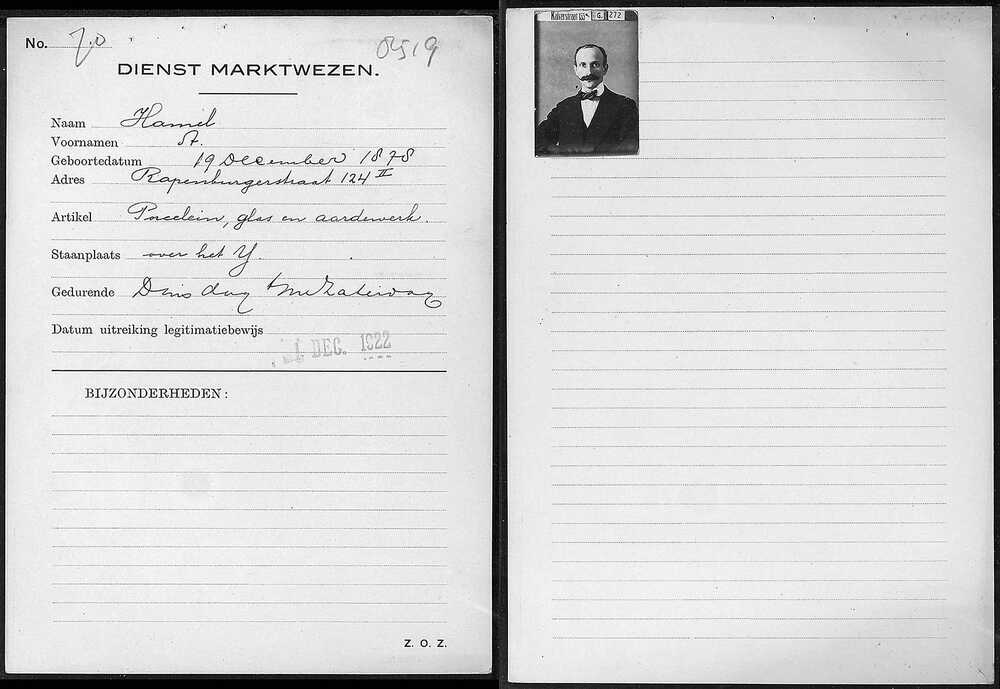 No. 70
8519
DIENST MARKTWEZEN.
Naam Hamel
Voornamen A.
Geboortedatum 19 December 1878
Adres Rapenburgerstraat 124 II
Artikel Porcelein, glas en aardewerk.
Staanplaats over het Y.
Gedurende Dinsdag t/m Zaterdag
Datum uitreiking legitimatiebewijs
DEC. 1922
BIJZONDERHEDEN:
Z. O. Z.
Kalverstraat G. 272